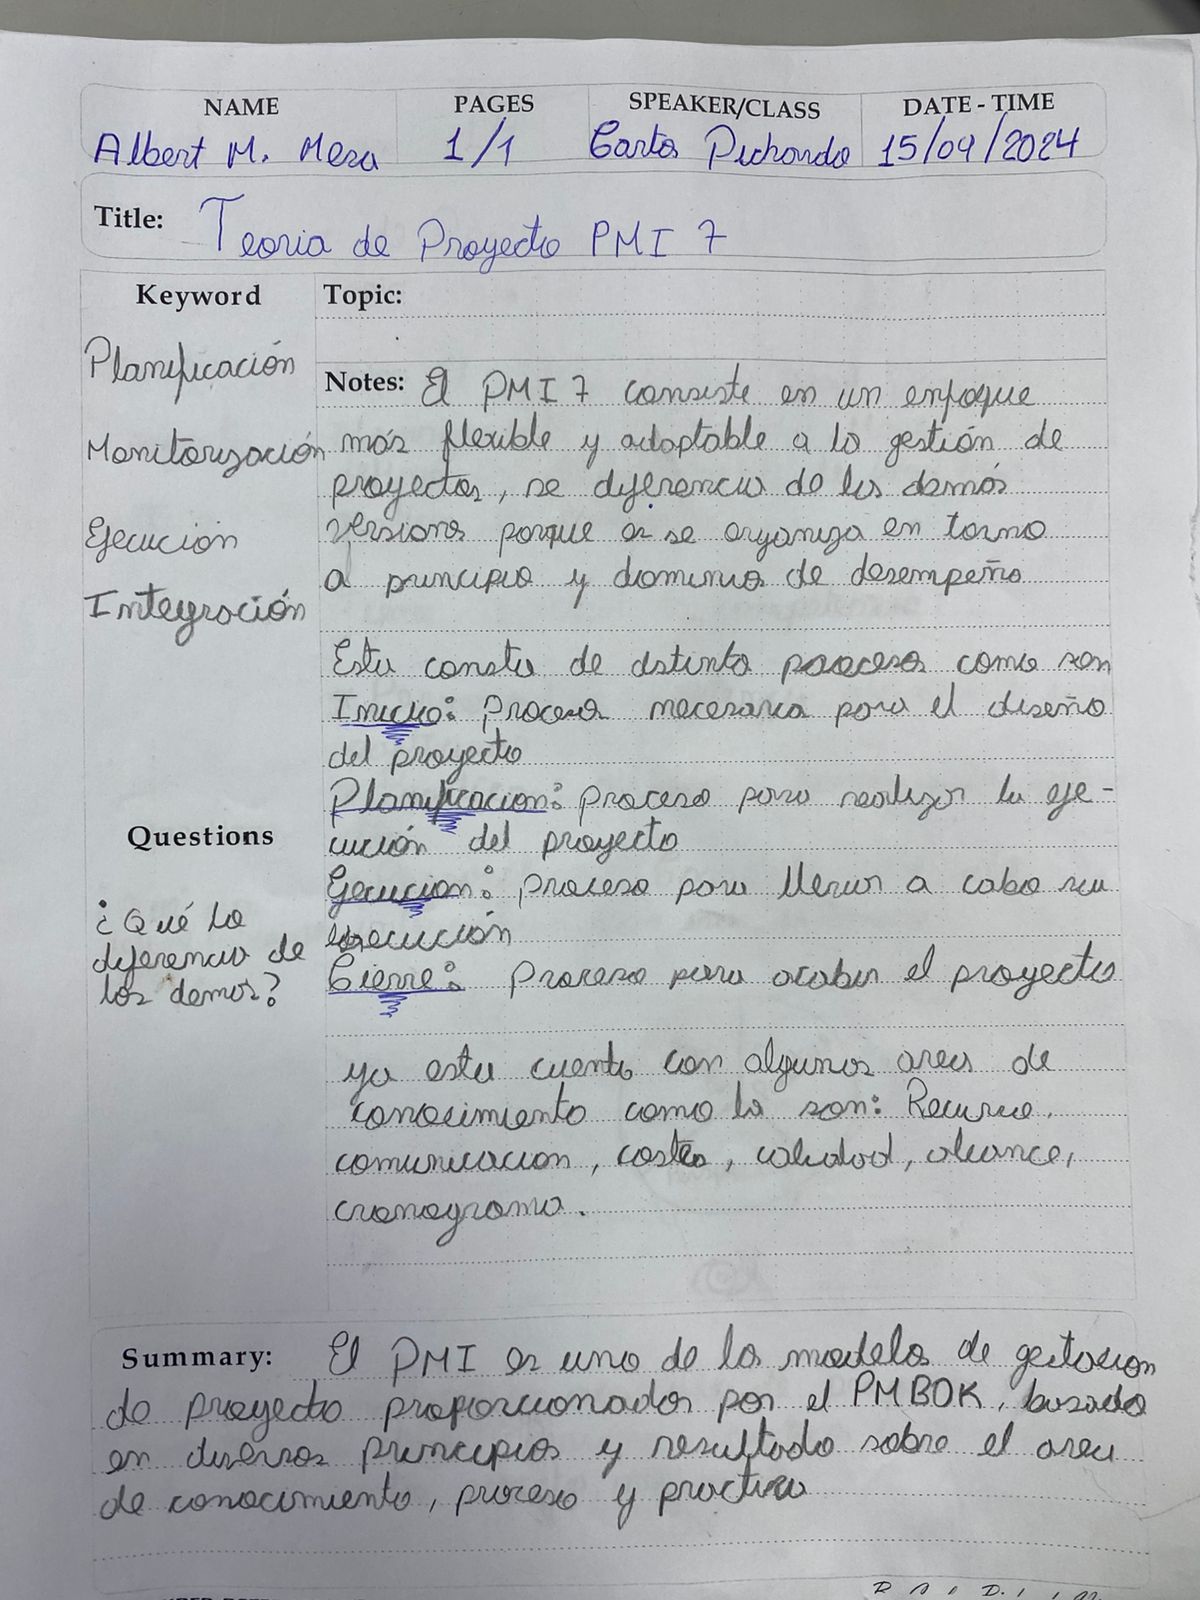 NAME PAGES SPEAKER/CLASS DATE - TIME
Albert M. Mesa 1/1 Carlos Pichardo 15/09/2024
Title: Teoria de Proyecto PMI 7
Keyword
Planificación
Monitorización
Ejecución
Integración
Questions
¿Qué lo
diferencia de
los demas?
Topic:
Notes: El PMI 7 consiste en un enfoque
más flexible y adaptable a la gestión de
proyectos, se diferencia de las demás
versiones porque es se organiza en torno
a principio y dominios de desempeño
Esta consta de distinto procesos como son
Inicio: Procesos necesarios para el diseño
del proyecto
Planificacion: proceso para realizar la eje-
cución del proyecto
Ejecucion: proceso para llevar a cabo su
ejecución
Cierre: Proceso para acabar el proyecto
ya esta cuenta con algunas areas de
conocimiento como lo son: Recurso.
comunicacion, costes, calidad, alcance,
cronograma.
Summary: El PMI es uno de los modelos de gestacion
de proyecto proporcionados por el PMBOK, basado
en diversos principios y resultado sobre el area
de conocimiento, proceso y practica